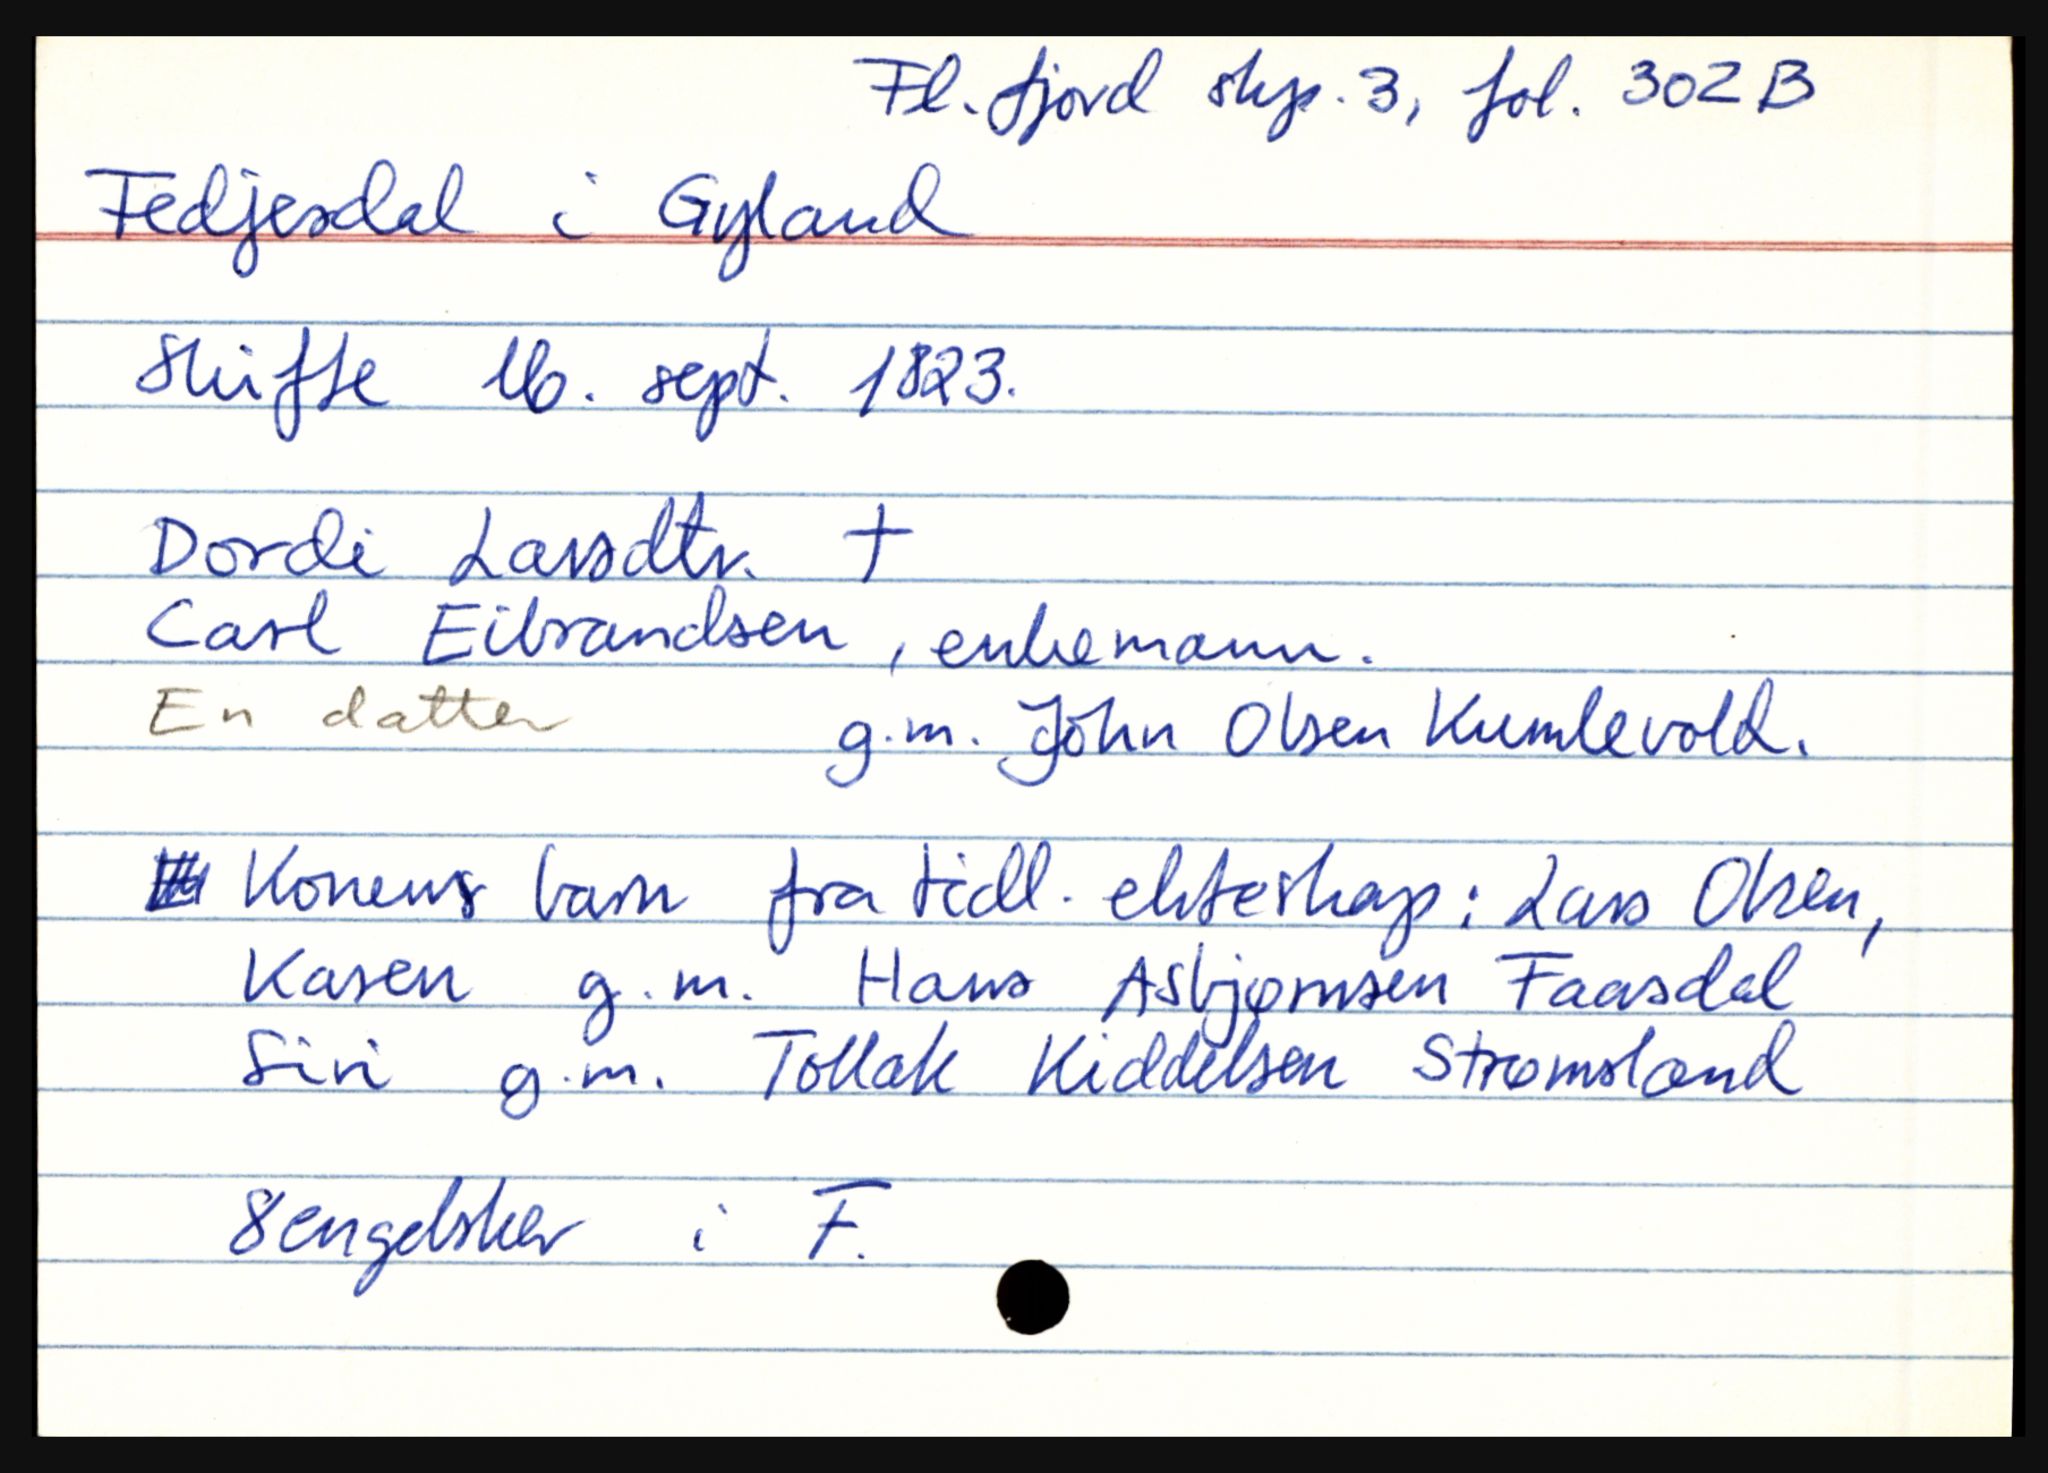 Fl.fjord skp. 3, fol. 302 B
Fedjesdal i Gyland
Skifte 16. sept. 1823.
Dordi Larsdtr. †
Carl Eibrandsen, enkemann.
En datter g.m. John Olsen Kumlevold.
Konens barn fra tidl. ekteskap: Lars Olsen,
Karen g.m. Hans Asbjørnsen Faasdal
Siri g.m. Tollak Kiddelsen Strømsland
8 engelsker i F.